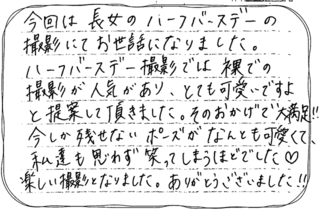 今回は長女のハーフバースデーの
撮影にてお世話になりました。
ハーフバースデー撮影では裸での
撮影が人気があり、とても可愛いですよ
と提案して頂きました。そのおかげで大満足!!
今しか残せないポーズがなんとも可愛くて、
私達も思わず笑ってしまうほどでした♡
楽しい撮影となりました。ありがとうございました!!